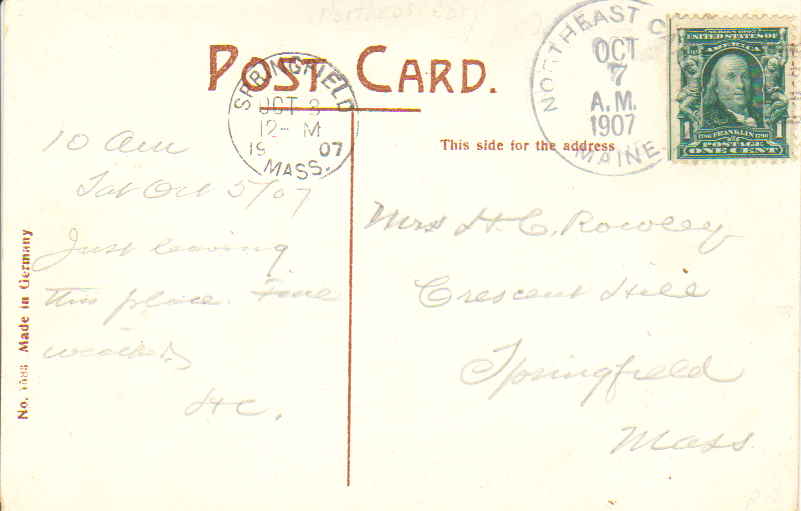 POST CARD.
SPRINGFIELD
OCT 8
12- M
19 07
MASS.
NORTHEAST
OCT
7
A.M.
1907
MAINE
SERIES 1902
UNITED STATES OF
AMERICA
1706 FRANKLIN 1790
POSTAGE
1 ONE CENT 1
This side for the address
10 am
Sat Oct 5/07
Just leaving
this place. Fine
weather
HC.
Mrs H. C. Rowley
Crescent Hill
Springfield
Mass.
Made in Germany